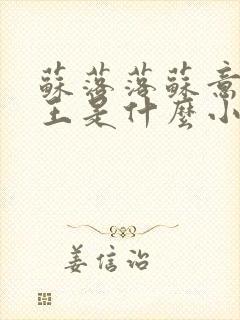 蘇落落蘇意
王是什麼小
姜信治